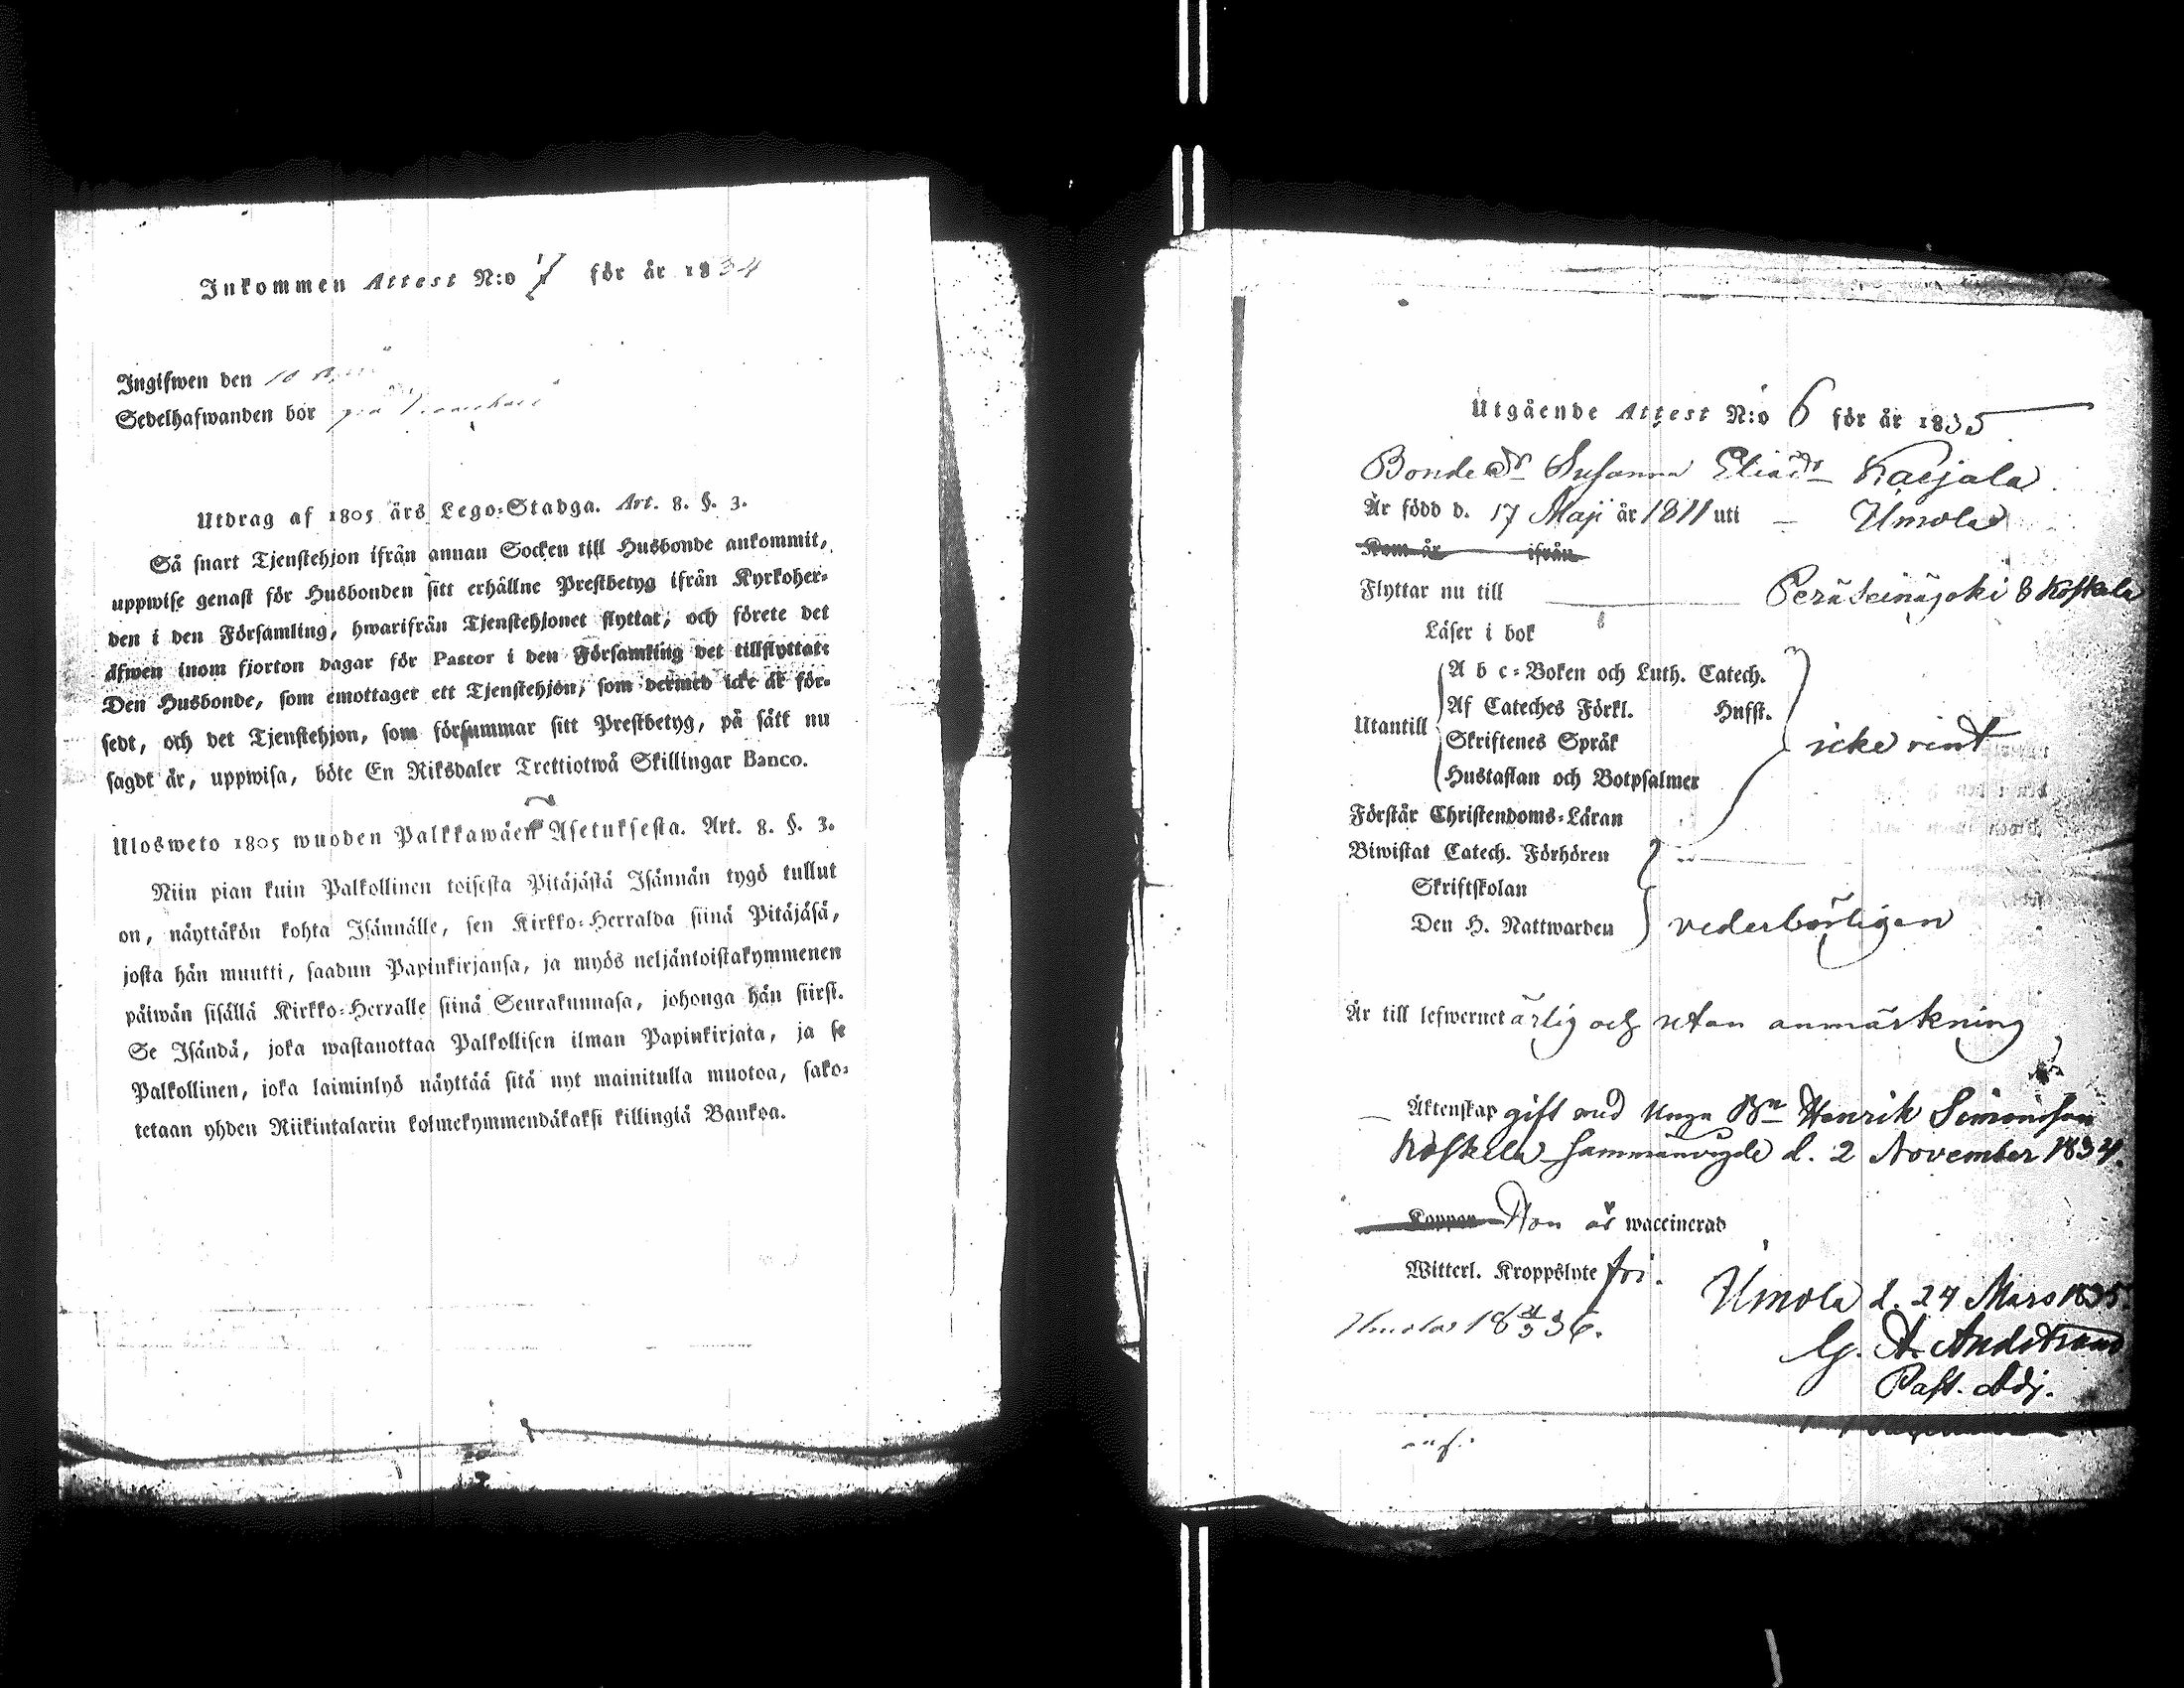 Inkommen Attest N:o 7 för år 1834
Ingifwen den 10
Sedelhafwanden bor på
Utdrag af 1805 års Lego-Stadga. Art. 8. §. 3.
Så snart Tjenstehjon ifrån annan Socken till Husbonde ankommit,
uppwise genast för Husbonden sitt erhållne Prestbetyg ifrån Kyrkoher-
den i den Församling, hwarifrån Tjenstehjonet flyttat, och förete det
äfwen inom fjorton dagar för Pastor i den Församling det tillflyttat:
Den Husbonde, som emottager ett Tjenstehjon, som dermed icke är för-
sedt, och det Tjenstehjon, som försummar sitt Prestbetyg, på sätt nu
sagdt är, uppwisa, böte En Riksdaler Trettiotwå Skillingar Banco.
Ulosweto 1805 wuoden Palkkawäen Asetuksesta. Art. 8. §. 3.
Niin pian kuin Palkollinen toisesta Pitäjästä Isännän tygö tullut
on, näyttäkön kohta Isännälle, sen Kirkko-Herralda siinä Pitäjäsä,
josta hän muutti, saadun Papinkirjansa, ja myös neljäntoistakymmenen
päiwän sisällä Kirkko-Herralle siinä Seurakunnasa, johonga hän siirst.
Se Isändä, joka wastanottaa Palkollisen ilman Papinkirjata, ja se
Palkollinen, joka laiminlyö näyttää sitä nyt mainitulla muotoa, sako-
tetaan yhden Riikintalarin kolmekymmendäkaksi killingiä Bankoa.
Utgående Attest N:o 6 för år 1835
Bonde Dr Susanna Eliædr Karjala
Är född d. 17 Maji år 1811 uti Ilmola
Kom år ifrån
Flyttar nu till Peräseinäjoki 8 Koskela
Läser i bok
A b c-Boken och Luth. Catech.
Utantill Af Cateches Förkl. Hufst.
Skriftenes Språk
Hustaflan och Botpsalmer
icke rent
Förstår Christendoms-Läran
Biwistat Catech. Förhören
Skriftskolan
Den H. Nattwarden vederbörligen
Är till lefwernet ärlig och utan anmärkning
Äktenskap gift med Unga Bn Henrik Simonsson
Koskela sammanvigde d. 2 November 1834.
Koppor Hon är waccinerad
Witterl. Kroppslyte fri.
Ilmola d. 24 Mars 1835.
G. A. Andstrand
Past. Adj.